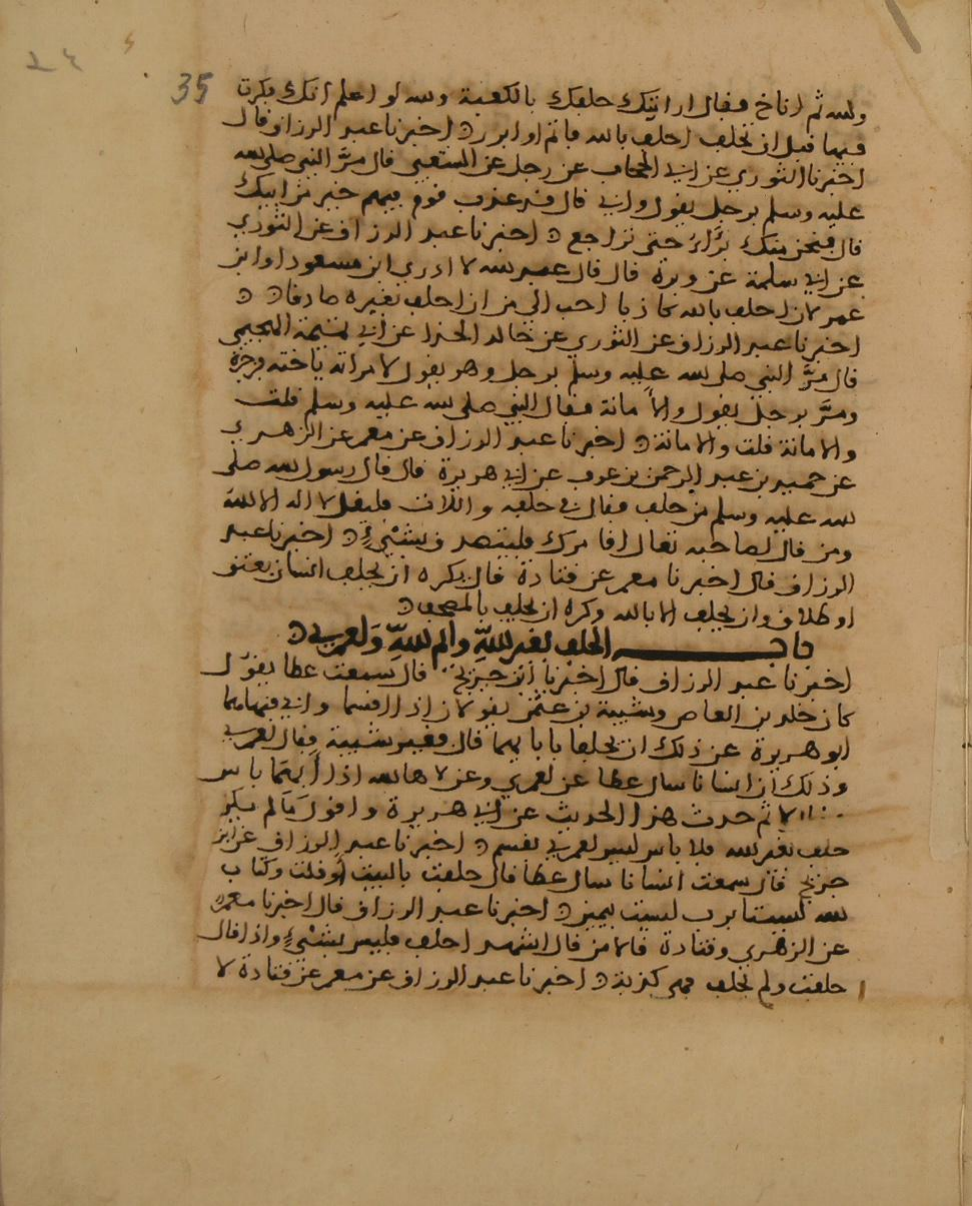 35
ولله ثم اناخ فقال ارايتك حلفك بالكعبة والله لو اعلم انك فكرت
فيها قبل ان تحلف احلف بالله فاثم او ابرر ه اخبرنا عبد الرزاق قال
اخبرنا الثوري عن ابي الجحاف عن رجل عن الشعبي قال مر النبي صلى الله
عليه وسلم برجل يقول وابي قال قد عذب قوم فيهم خير من ابيك
قال فنحن منك براء حتى تراجع ه اخبرنا عبد الرزاق عن الثوري
عن ابي سلمة عن وبرة قال قال عبد الله لا ادري ابن مسعود او ابن
عمر لان احلف بالله كاذبا احب الي من ان احلف بغيره صادقا ه ه
اخبرنا عبد الرزاق عن الثوري عن خالد الحذا عن ابي تميمة الهجيمي
قال مر النبي صلى الله عليه وسلم برجل وهو يقول لامراته ياخته فزجره
ومر برجل يقول والامانة فقال النبي صلى الله عليه وسلم قلت
والامانة قلت والامانة ه اخبرنا عبد الرزاق عن معمر عن الزهري
عن حميد بن عبد الرحمن بن عوف عن ابي هريرة قال قال رسول الله صلى
الله عليه وسلم من حلف فقال في حلفه واللات فليقل لا اله الا الله
ومن قال لصاحبه تعال اقامرك فليتصدق بشيء ه اخبرنا عبد
الرزاق قال اخبرنا معمر عن قتادة قال يكره ان يحلف انسان بعتق
او طلاق وان يحلف الا بالله وكره ان يحلف بالمصحف ه
باب الحلف بغير الله وايم الله ولعمري ه
اخبرنا عبد الرزاق قال اخبرنا ابن جريج قال سمعت عطا يقول
كان خلد بن العاص وشيبة بن عثمن يقولان اذا اقسما وابي فنهاهما
ابو هريرة عن ذلك ان يحلفا بابايهما قال فغير شيبة فقال لعمري
وذلك ان انسانا سال عطا عن لعمري وعن لا ها الله اذا ابهما باس
لا ثم حدث هذا الحديث عن ابي هريرة واقول ما لم يكن
حلف بغير الله فلا باس ليس لعمري بقسم ه اخبرنا عبد الرزاق عن ابن
جريج قال سمعت انسانا سال عطا قال حلفت بالبيت او قلت وكتاب
الله ليستا برب ليست بيمين ه اخبرنا عبد الرزاق قال اخبرنا معمر
عن الزهري وقتادة قالا من قال اشهد احلف فليس بشيء واذا قال
حلفت ولم يحلف فهي كذبة ه اخبرنا عبد الرزاق عن معمر عن قتادة لا